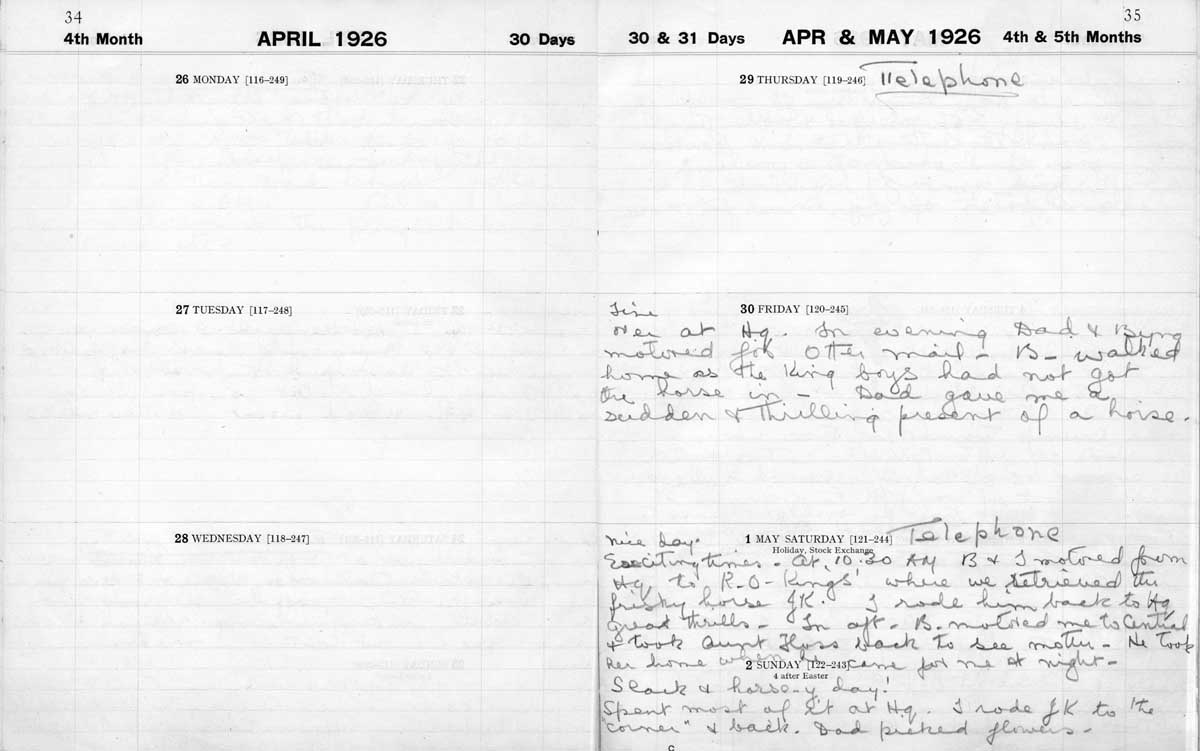 34
4th Month APRIL 1926 30 Days
26 MONDAY [116-249]
27 TUESDAY [117-248]
28 WEDNESDAY [118-247]
35
30 & 31 Days APR & MAY 1926 4th & 5th Months
29 THURSDAY [119-246] Telephone
30 FRIDAY [120-245]
Fine
over at Hq. In evening Dad & Byng
motored for Otter mail - B - walked
home as the King boys had not got
the horse in - Dad gave me a
sudden & thrilling present of a horse.
1 MAY SATURDAY [121-244] Telephone
Holiday, Stock Exchange
nice day.
Exciting times - at 10.30 AM B & I motored from
Hq to R.O - Kings' where we retrieved the
frisky horse JK. I rode him back to Hq
great thrills - In aft - B. motored me to Central
& took Aunt Floss back to see mother - He took
her home when he came for me at night -
2 SUNDAY [122-243]
4 after Easter
Slack & horse-y day!
Spent most of it at Hq. I rode JK to the
"corner" & back. Dad picked flowers -